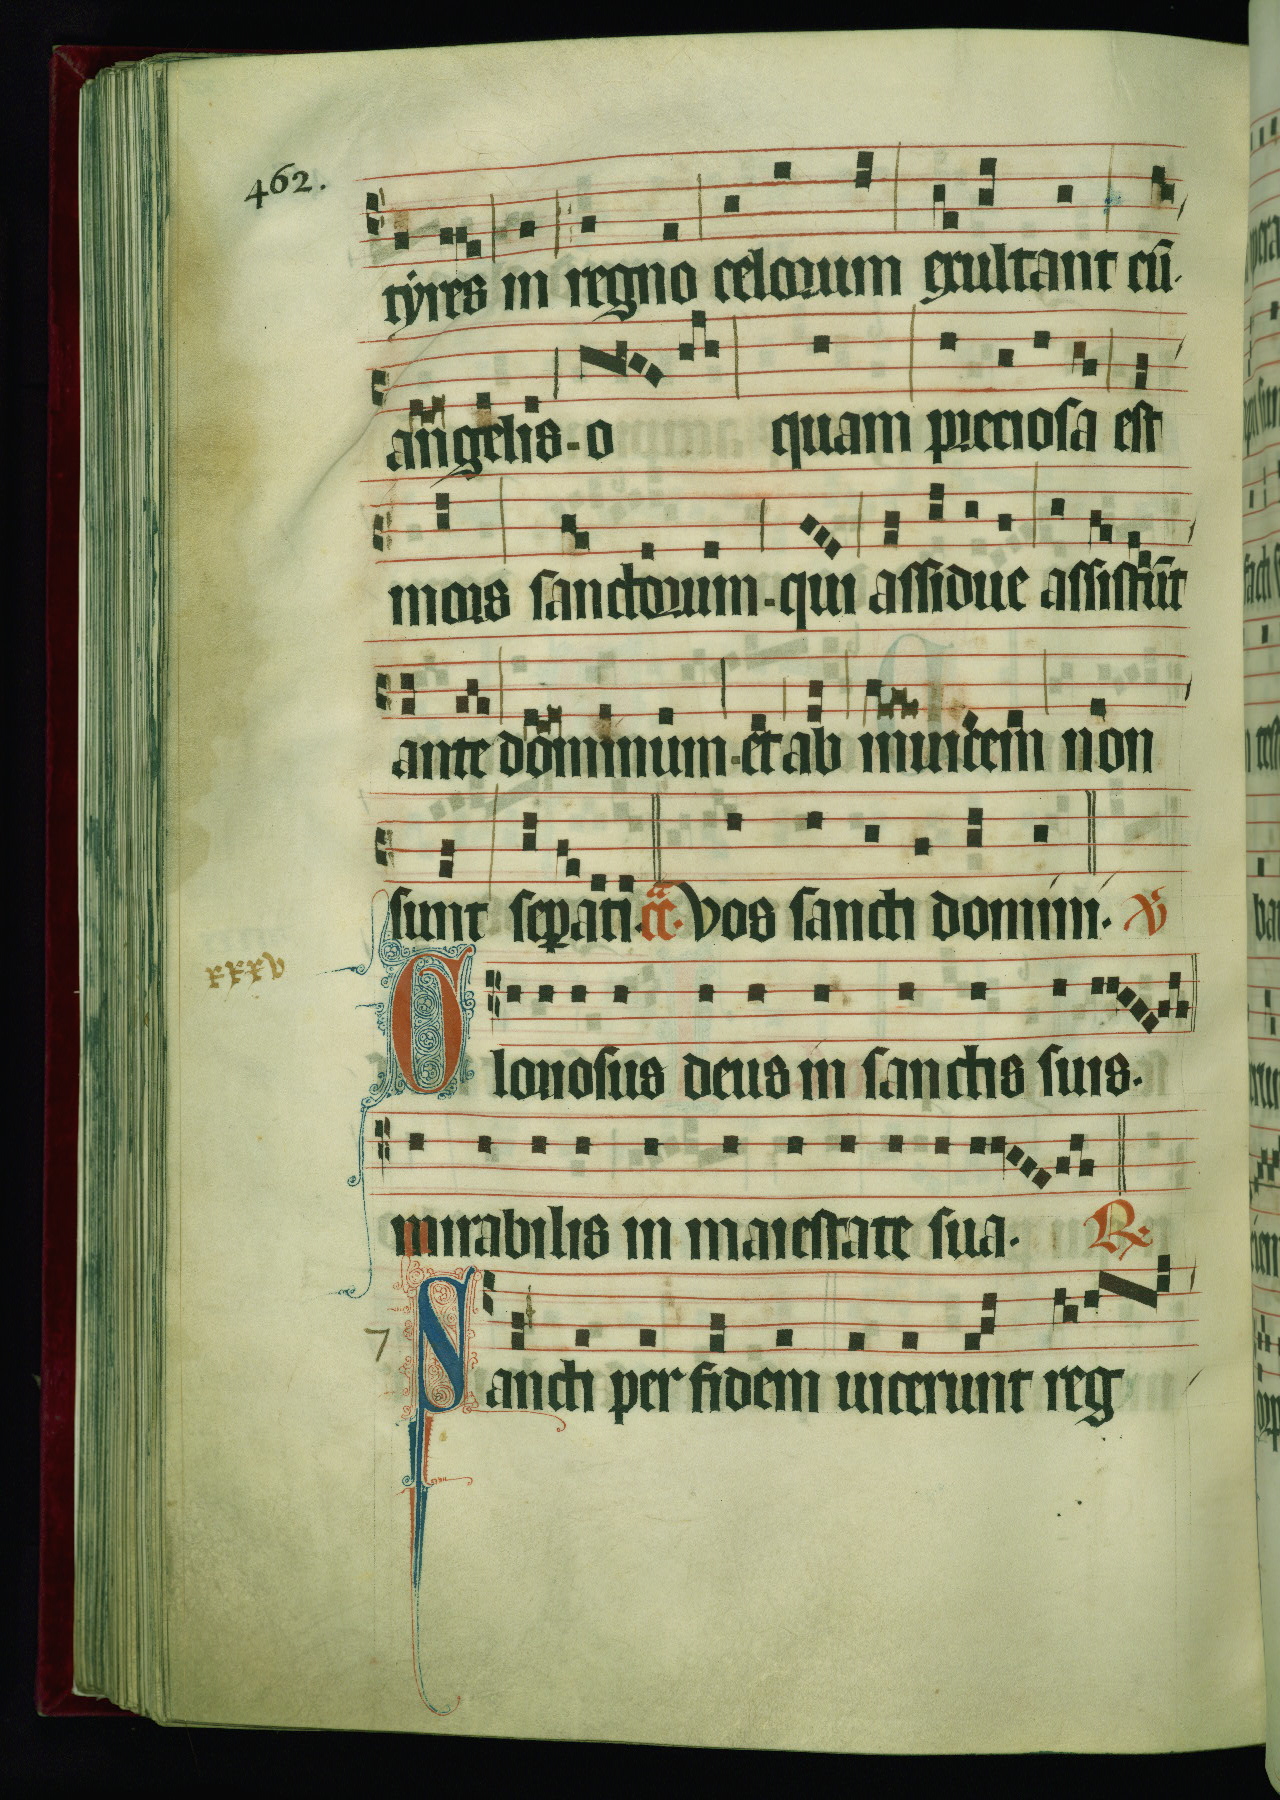 462.
tyres in regno celorum exultant cū.
angelis. o quam preciosa est
mors sanctorum. qui assidue assistūt
ante dominum. et ab inuicem non
sunt seꝑati. Vos sancti domini. ℣
xxxv
Gloriosus deus in sanctis suis.
mirabilis in maiestate sua. ℟
7
Sancti per fidem uicerunt reg